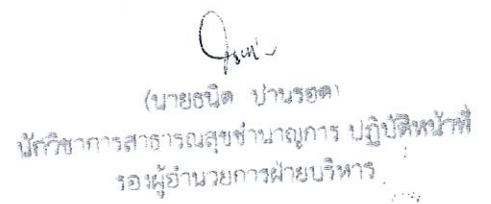 (นายธนิต ปานรอด)
นักวิชาการสาธารณสุขชำนาญการ ปฏิบัติหน้าที่
รองผู้อำนวยการฝ่ายบริหาร